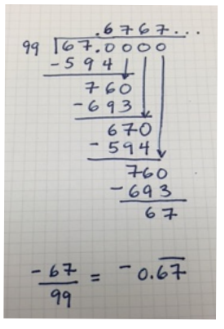 .6767...
99 67.0000
-594
760
-693
670
-594
760
-693
67
-67/99 = -0.6̅7̅